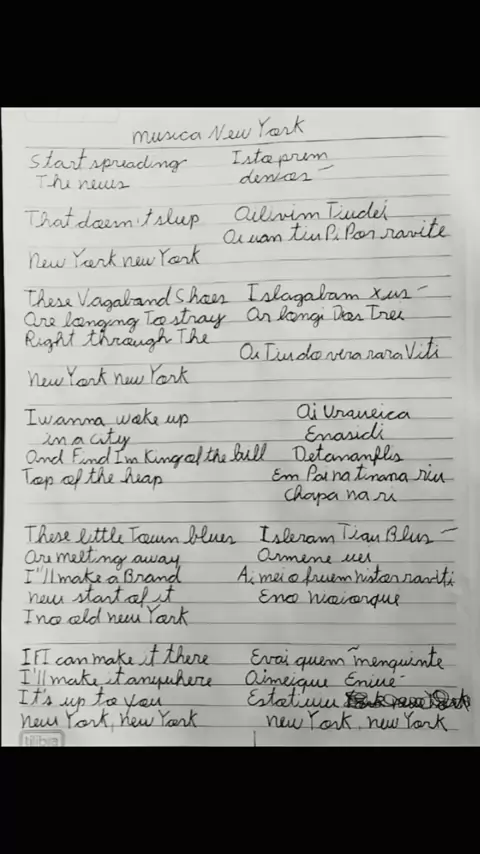 musica New York
Start spreading Istaprem
The news denios
That doesn't slup Ailivim Tiudei
Ai uan tiu Pi Par ravite
New York new York
These Vagaband Shoes Islagabam xus
Are longing To stray Ar longi Das Trei
Right through The
Ai Tiu do vira rara Viti
New York new York
I wanna wake up Ai Uraueica
in a city Enasidi
And Find Im King of the hill Detananflis
Top of the heap Em Pai na tinana riu
Chapa na ri
These little Town blues Isleram Tiau Blus
Are melting away Armene uei
I'll make a Brand Ai mei o fruem histar raviti
new start of it Eno noiorque
I no old new York
If I can make it there Evai quem menquinte
I'll make it anywhere Aimeique Eniue
It's up to you Estatiuu
New York, New York new York, new York
tilibra